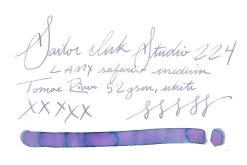 Sailor Ink Studio 224
LAMY safari medium
Tomoe River 52gsm, white
XXXXX